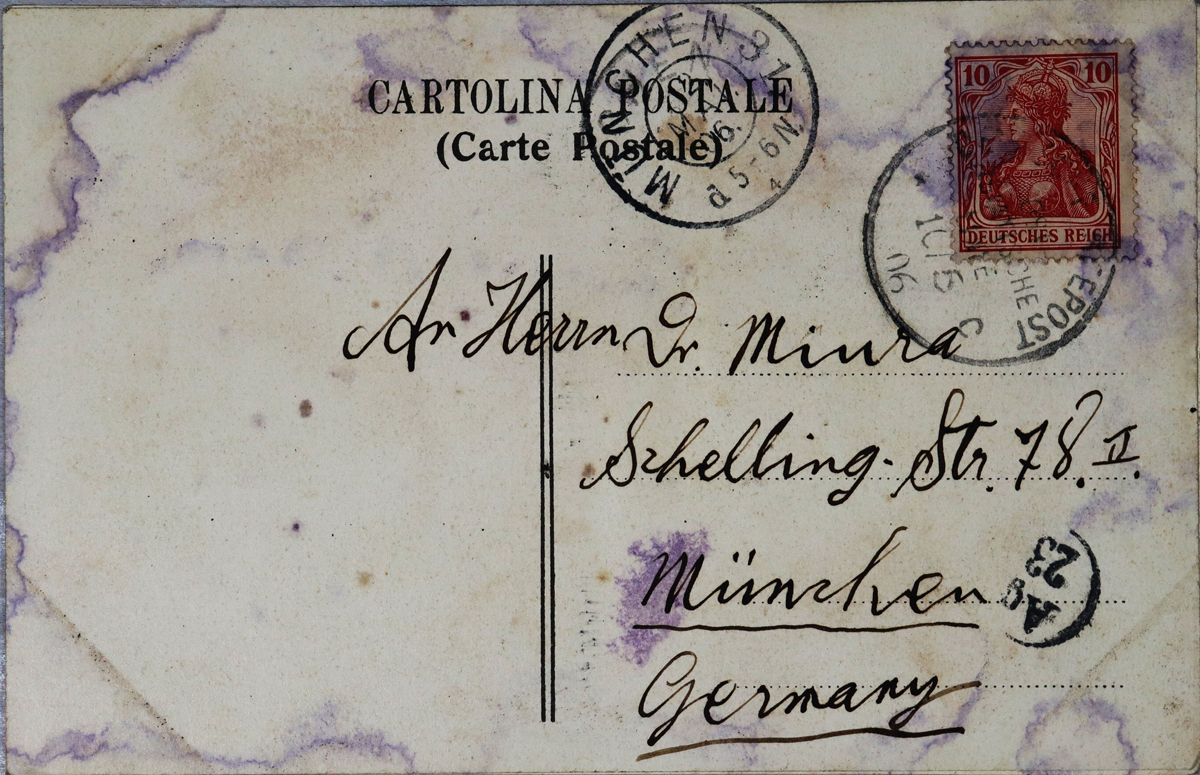 CARTOLINA POSTALE
(Carte Postale)
MÜNCHEN 31
MAI
06.
5-6N
10 10
DEUTSCHES REICH
EPOST
C
06
An Herrn Dr. Miura
Schelling-Str. 78. II.
München
Germany
Ag
23